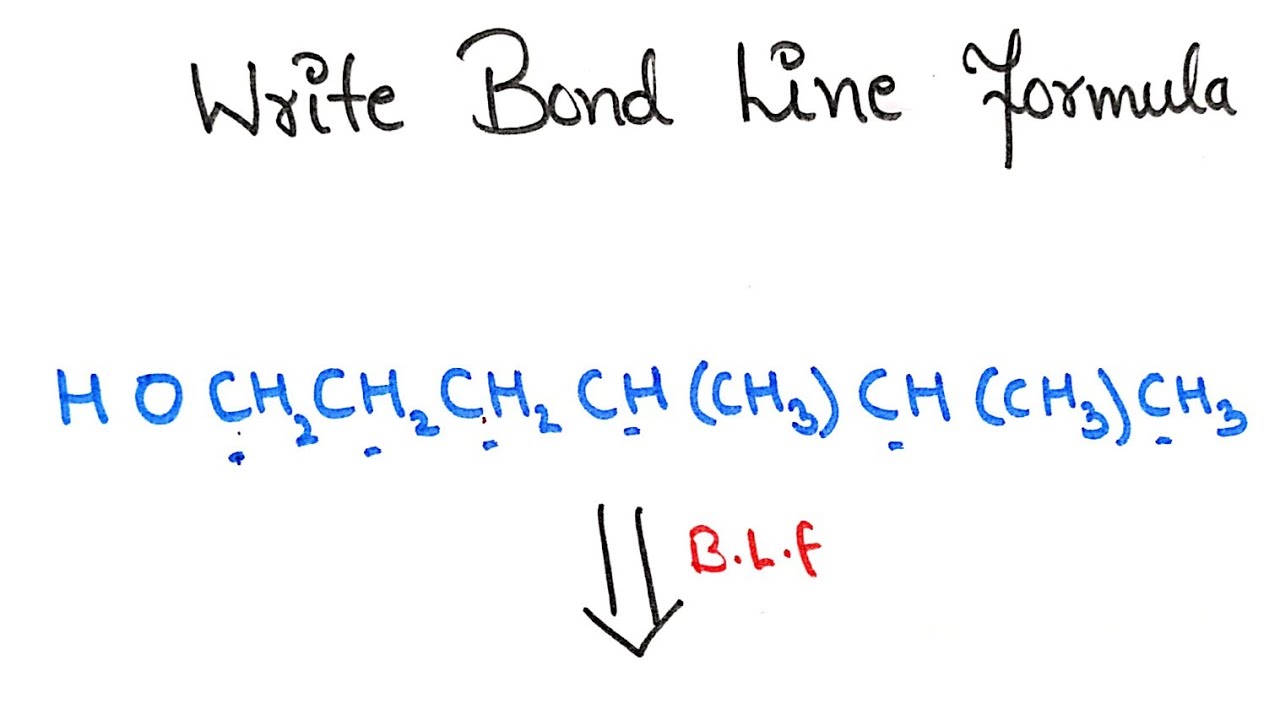 Write Bond Line Formula
HOCH₂CH₂CH₂CH(CH₃)CH(CH₃)CH₃
B.L.F